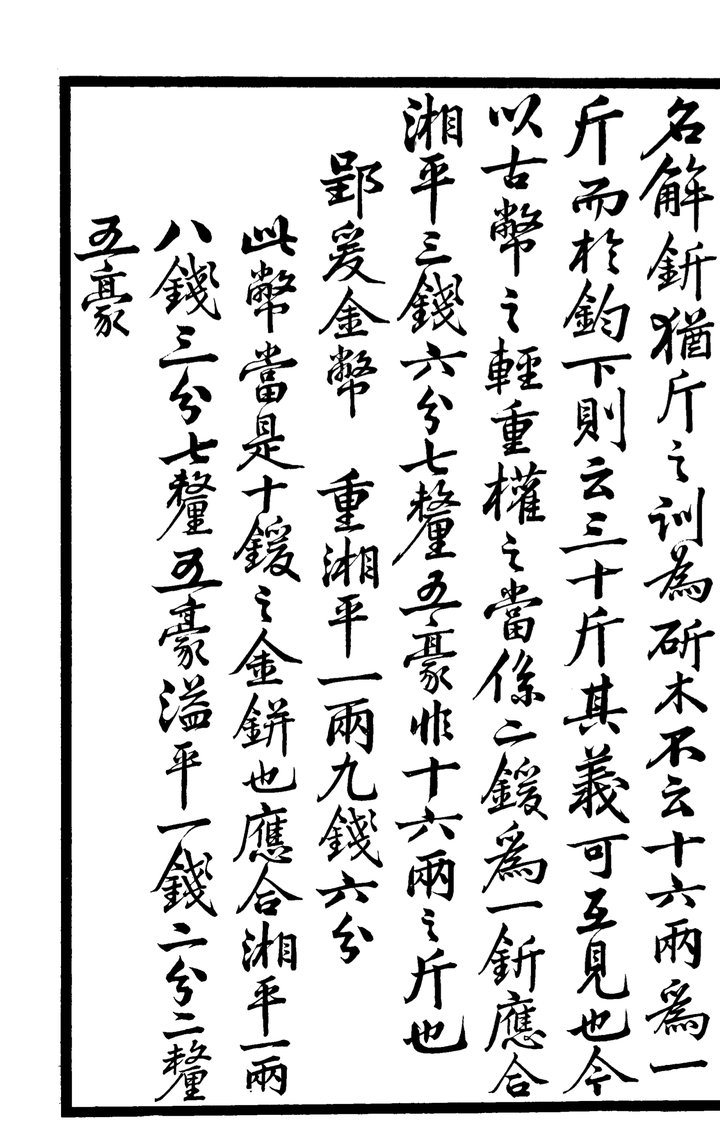 名解釿猶斤之訓為斫木不云十六兩爲一
斤而於鈞下則云三十斤其義可互見也今
以古幣之輕重權之當係二鍰爲一釿應合
湘平三錢六分七釐五豪非十六兩之斤也
郢爰金幣　重湘平一兩九錢六分
此幣當是十鍰之金鉼也應合湘平一兩
八錢三分七釐五豪溢平一錢二分二釐
五豪